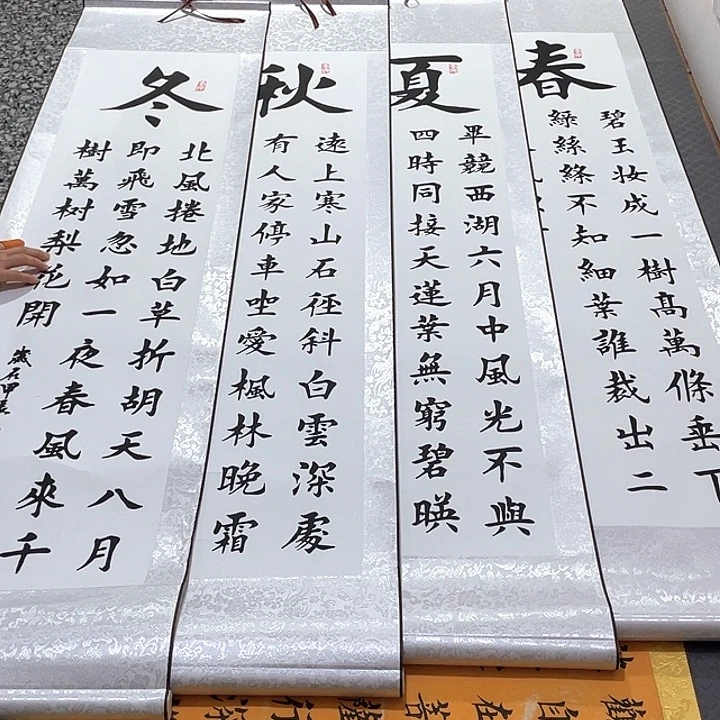 春
碧玉妆成一樹高萬條垂下
綠絲絛不知細葉誰裁出二
夏
畢競西湖六月中風光不與
四時同接天蓮葉無窮碧暎
秋
遠上寒山石径斜白雲深處
有人家停車坐愛楓林晚霜
冬
北風捲地白草折胡天八月
即飛雪忽如一夜春風來千
樹萬树梨花開
歲在甲辰